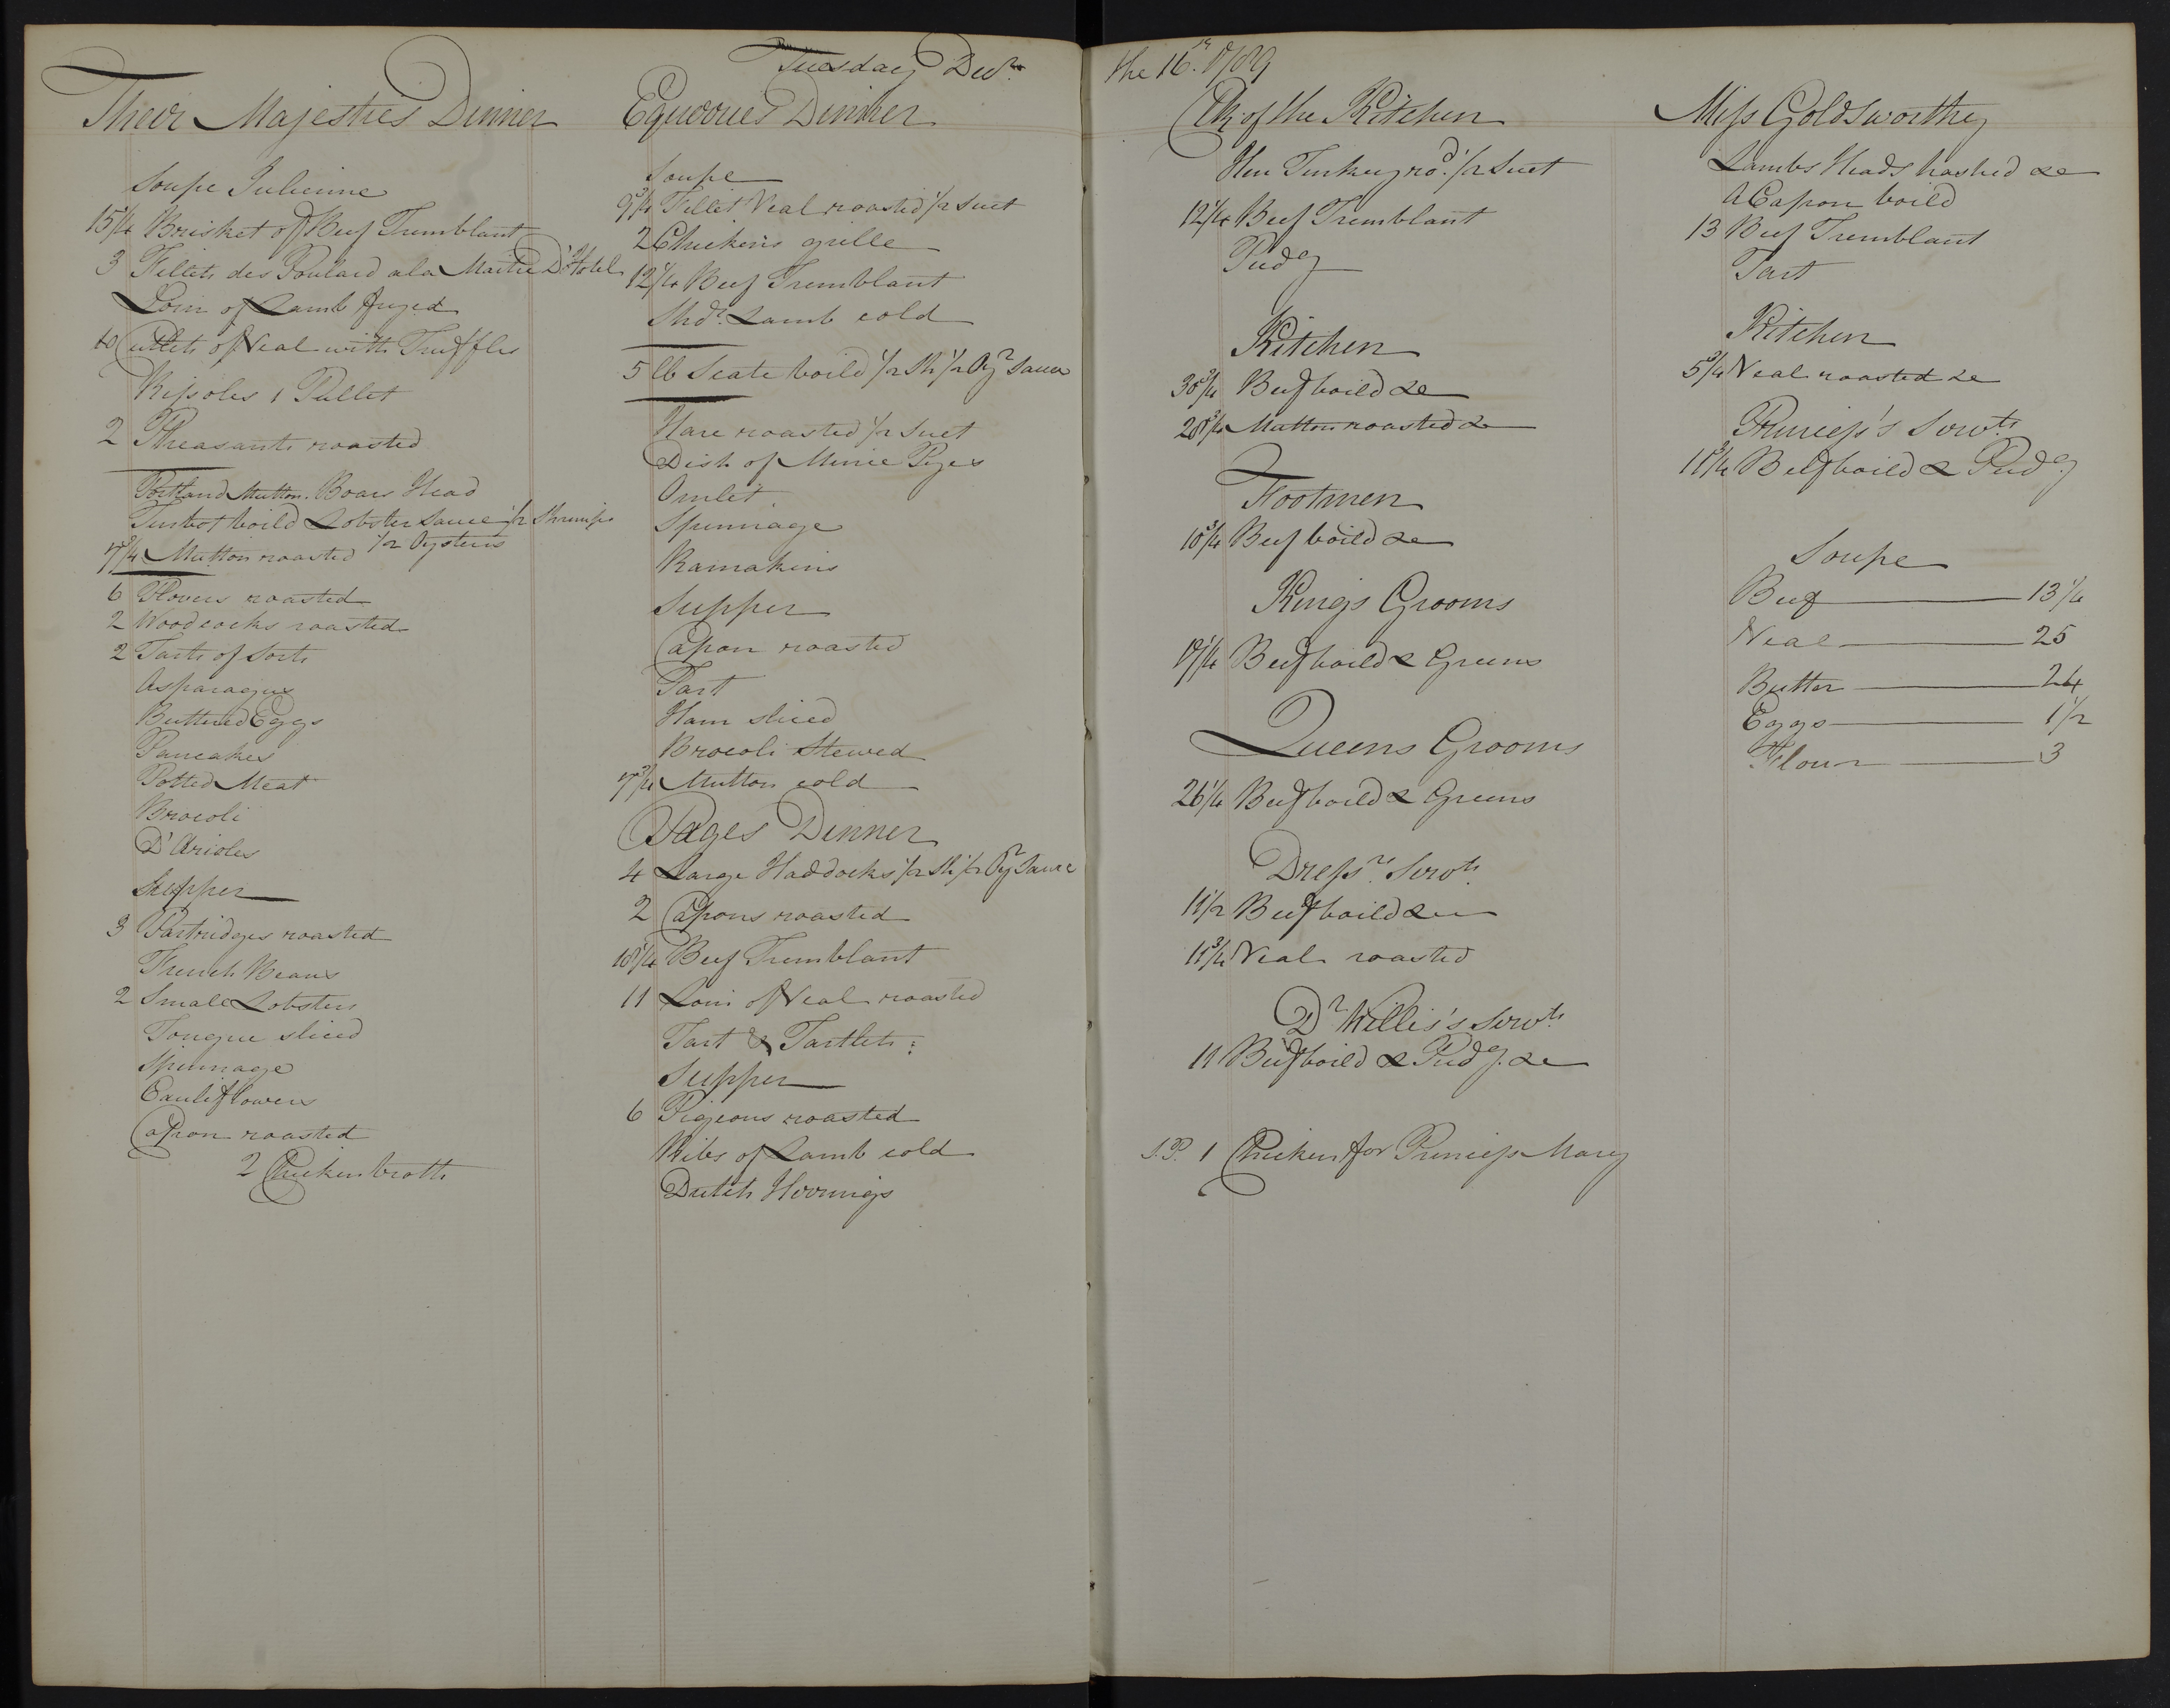 Tuesday Decr. the 16th. 1789
Their Majesties Dinner
Soupe Julienne
15 1/4 Brisket of Beef Tremblant
3 Fillets des Poulard a la Maitre D'Hotel
Loin of Lamb fryed
10 Cutlets of Veal with Truffles
Rissoles 1 Pullet
2 Pheasants roasted
Portland Mutton. Boars Head
Turbot boild Lobster Sauce 1/2 Shrimps
1/2 Oysters
17 3/4 Mutton roasted
6 Plovers roasted
2 Woodcocks roasted
2 Tarts of Sorts
Asparagus
Buttered Eggs
Pancakes
Potted Meat
Brocoli
D'Arioles
Supper
3 Partridges roasted
French Beans
2 Small Lobsters
Tongue sliced
Spinnage
Cauliflowers
Capon roasted
2 Chicken broth
Equorries Dinner
Soupe
9 3/4 Fillet Veal roasted 1/2 Suet
2 Chickens grille
12 1/4 Beef Tremblant
Shdr. Lamb cold
5 lb Scate boild 1/2 Sh 1/2 Oyr Sauce
Hare roasted 1/2 Suet
Dish of Mince Pyes
Omlet
Spinnage
Ramakins
Supper
Capon roasted
Tart
Ham sliced
Brocoli Stewed
17 3/4 Mutton cold
Pages Dinner
4 Large Haddocks 1/2 Sh 1/2 Oyr Sauce
2 Capons roasted
18 1/4 Beef Tremblant
11 Loin of Veal roasted
Tart & Tartlets:
Supper
6 Pigeons roasted
Ribs of Lamb cold
Dutch Herrings
Clk of the Kitchen
Hen Turkey rod. 1/2 Suet
12 1/4 Beef Tremblant
Pudg
Kitchen
30 3/4 Beef boild &c
28 3/4 Mutton roasted &
Footmen
18 3/4 Beef boild &c
Kings Grooms
19 1/4 Beef boild & Greens
Queens Grooms
26 1/4 Beef boild & Greens
Dressrs. Servts
11 1/2 Beef boild &c
11 3/4 Veal roasted
Dr Willis's Servts
11 Beef boild & Pudg. &c
S.P. 1 Chicken for Princess Mary
Miss Goldsworthy
Lambs Heads hashed &c
A Capon boild
13 Beef Tremblant
Tart
Kitchen
5 3/4 Veal roasted &c
Princess's Servts
11 3/4 Beef boild & Pudg
Soupe
Beef 13 1/4
Veal 25
Butter 24
Eggs 1 1/2
Flour 3